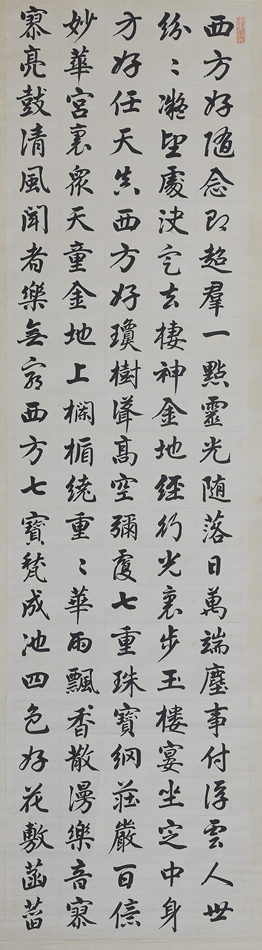 西方好隨念即超羣一點靈光随落日萬端塵事付浮雲人世
紛〻凝望處決定去棲神金地經行光裏步玉樓宴坐定中身
方好任天真西方好瓊樹聳高空彌覆七重珠寶網莊嚴百億
妙華宮裏眾天童金地上欄楯繞重〻華雨飄香散漫樂音寥
寥亮鼓清風聞者樂無窮西方七寶甃成池四色好花敷菡萏